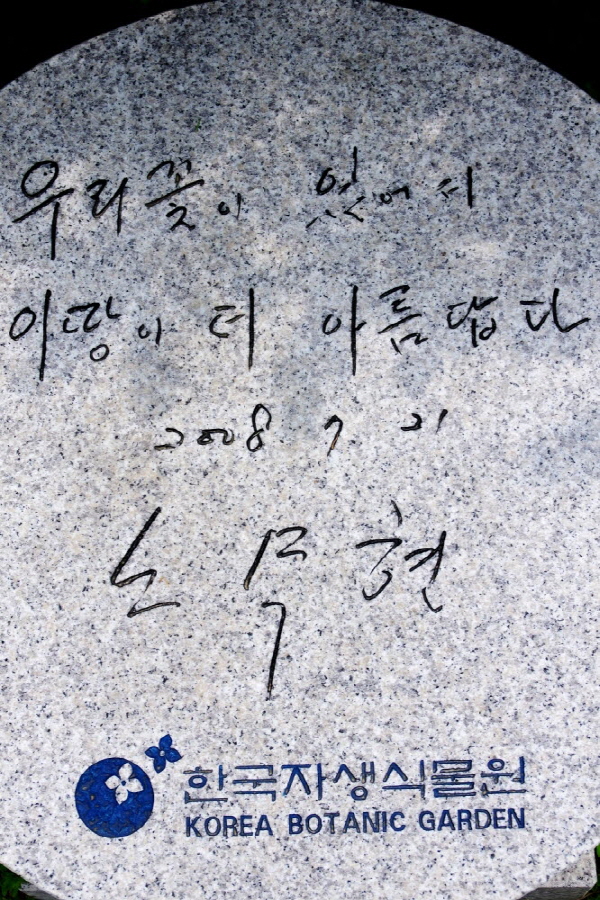 우리꽃이 있어 더
이땅이 더 아름답다
2008 7 21
노무현
한국자생식물원
KOREA BOTANIC GARDEN